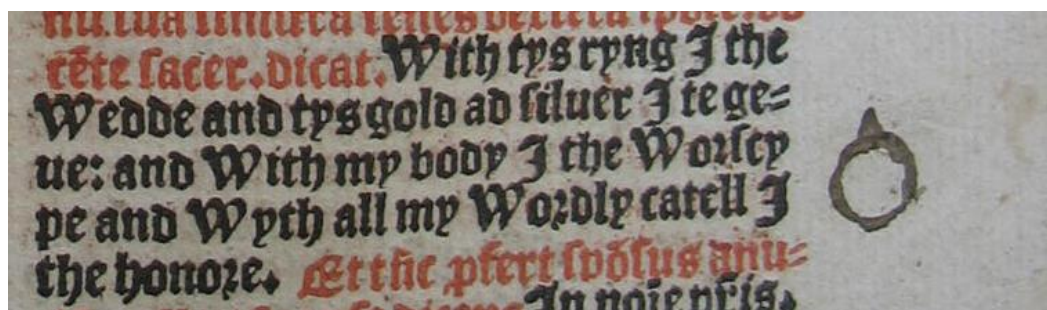 rēte sacer. dicat. With tys ryng J the
Wedde and tys gold ad siluer J te ge=
ue: and With my body J the Worscy
pe and Wyth all my Wordly catell J
the honore. Et tūc pfert spōsus anu=
In noie pr̄is.